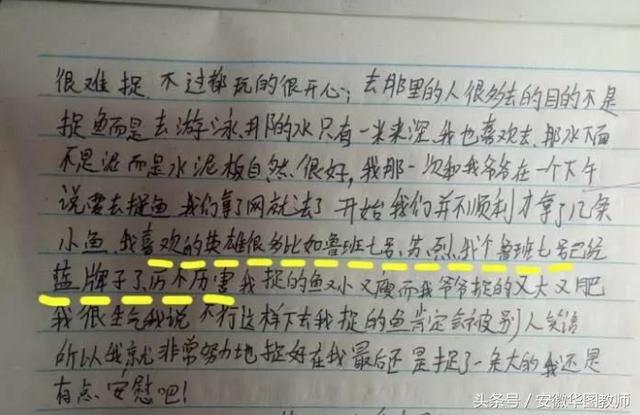 很难捉 不过都玩的很开心；去那里的人很多去的目的不是
捉鱼而是去游泳,那的水只有一米来深,我也喜欢去,那水下面
不是泥而是水泥板自然很好,我那一次和我爷爷在一个下午
说要去捉鱼 我们拿了网就去了 开始我们并不顺利才拿了几条
小鱼,我喜欢的英雄很多比如鲁班七号,苏烈,我个鲁班七号已经
蓝牌子了,厉不厉害 我捉的鱼又小又瘦而我爷爷捉的又大又肥
我很生气我说 不行这样下去我捉的鱼肯定会被别人笑话
所以我就非常努力地捉好在我最后还是捉了一条大的我还是
有点 安慰吧!
头条号 / 安徽华图教师